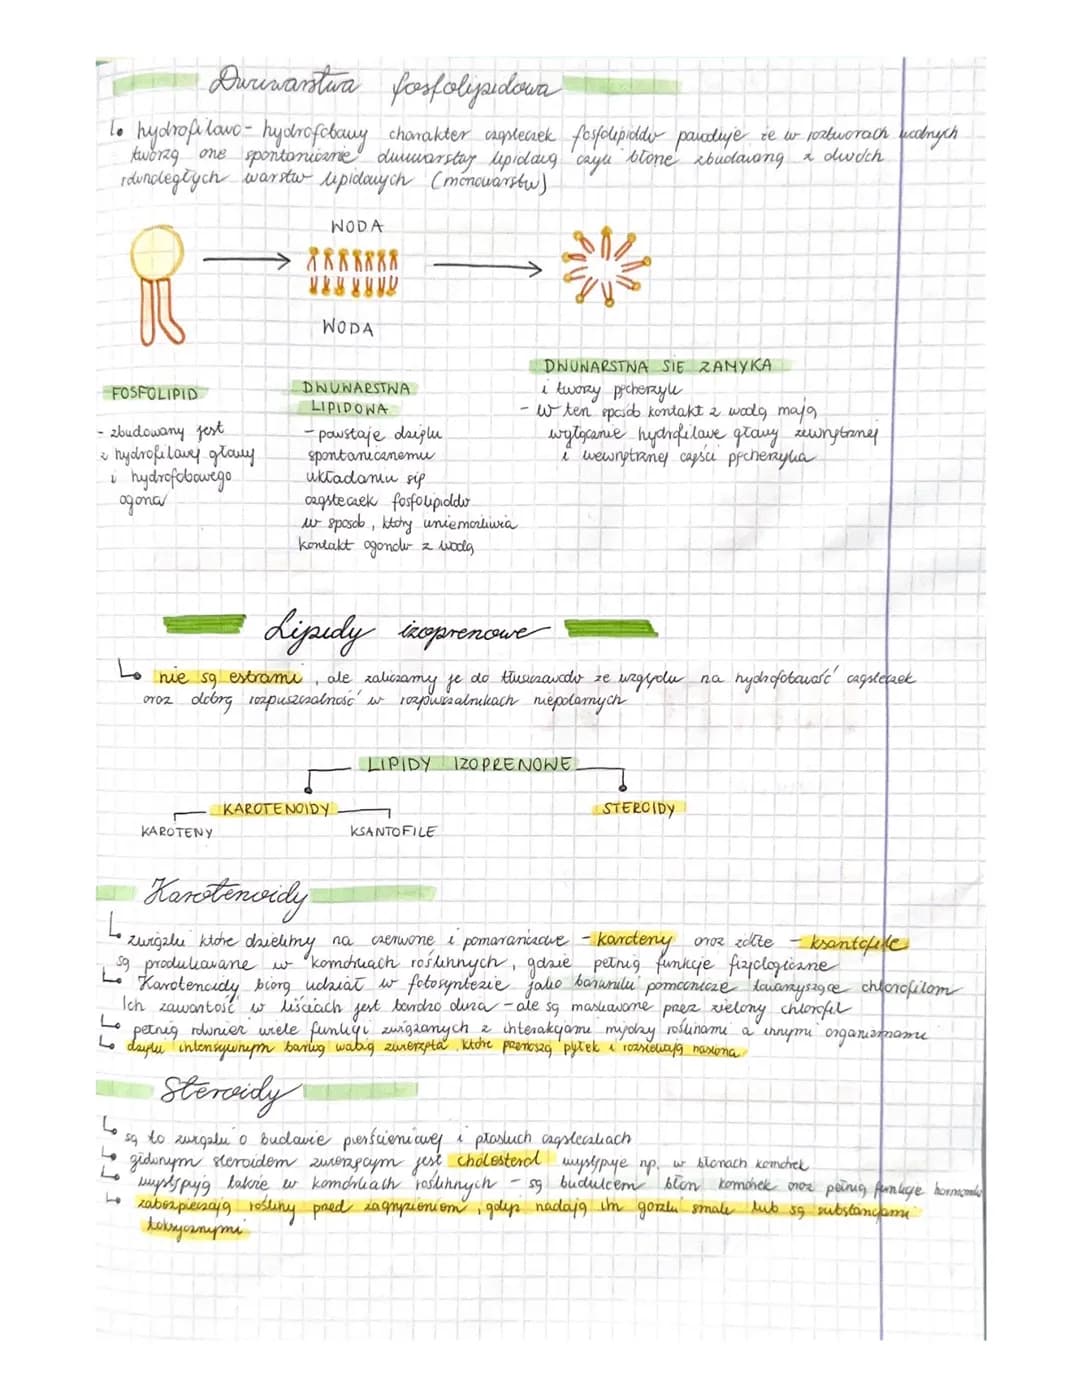 Dwuwarstwa fosfolipidowa
hydrofilowo - hydrofobowy charakter cząsteczek fosfolipidów powoduje że w roztworach wodnych
tworzą one spontanicznie dwuwarstwy lipidową czyli błonę zbudowaną z dwóch
równoległych warstw lipidowych (monowarstw)
WODA
WODA
FOSFOLIPID
- zbudowany jest
z hydrofilowej głowy
i hydrofobowego
ogona
DWUWARSTWA
LIPIDOWA
- powstaje dzięki
spontanicznemu
układaniu się
cząsteczek fosfolipidów
w sposób, który uniemożliwia
kontakt ogonów z wodą
DWUWARSTWA SIE ZAMYKA
i tworzy pęcherzyk
- w ten sposób kontakt z wodą mają
wyłącznie hydrofilowe głowy zewnętrznej
i wewnętrznej części pęcherzyka
Lipidy izoprenowe
nie są estrami, ale zaliczamy je do tłuszczowców ze względu na hydrofobowość cząsteczek
oraz dobrą rozpuszczalność w rozpuszczalnikach niepolarnych
LIPIDY IZOPRENOWE
KAROTENOIDY
STEROIDY
KAROTENY
KSANTOFILE
Karotenoidy
związki które dzielimy na czerwone i pomarańczowe - karoteny oraz żółte - ksantofile
są produkowane w komórkach roślinnych, gdzie pełnią funkcje fizjologiczne
Karotenoidy biorą udział w fotosyntezie jako barwniki pomocnicze towarzyszące chlorofilom
Ich zawartość w liściach jest bardzo duża - ale są maskowane przez zielony chlorofil
pełnią również wiele funkcji związanych z interakcjami między roślinami a innymi organizmami
dzięki intensywnym barwą wabią zwierzęta, które przenoszą pyłek i rozsiewają nasiona
Steroidy
są to związki o budowie pierścieniowej i płaskich cząsteczkach
głównym steroidem zwierzęcym jest cholesterol występuje np. w błonach komórek
występują także w komórkach roślinnych - są budulcem błon komórek oraz pełnią funkcje
zabezpieczają rośliny przed zagryzieniem, gdyż nadają im gorzki smak lub są substancjami
toksycznymi